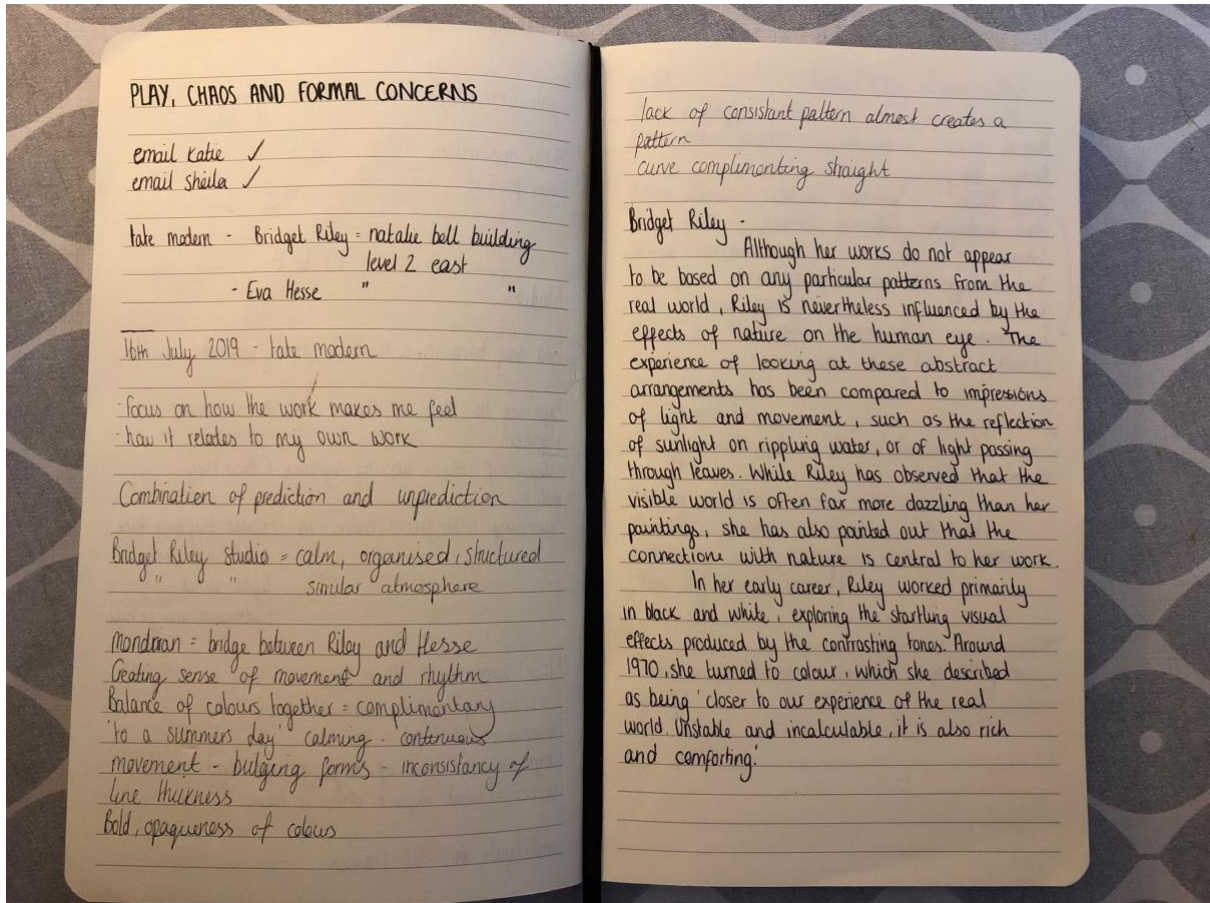 PLAY, CHAOS AND FORMAL CONCERNS
email Katie ✓
email Sheila ✓
tate modern - Bridget Riley = natalie bell building
level 2 east
- Eva Hesse " "
16th July 2019 - tate modern
- focus on how the work makes me feel
- how it relates to my own work
Combination of prediction and unprediction
Bridget Riley studio = calm, organised, structured
" " similar atmosphere
mondrian = bridge between Riley and Hesse
Creating sense of movement and rhythm
Balance of colours together = complimentary
'to a summers day' calming - continuous
movement - bulging forms - inconsistancy of
line thickness
Bold, opaqueness of colours
lack of consistant pattern almost creates a
pattern
curve complimenting straight
Bridget Riley -
Although her works do not appear
to be based on any particular patterns from the
real world, Riley is nevertheless influenced by the
effects of nature on the human eye. The
experience of looking at these abstract
arrangements has been compared to impressions
of light and movement, such as the reflection
of sunlight on rippling water, or of light passing
through leaves. While Riley has observed that the
visible world is often far more dazzling than her
paintings, she has also pointed out that the
connection with nature is central to her work.
In her early career, Riley worked primarily
in black and white, exploring the startling visual
effects produced by the contrasting tones. Around
1970, she turned to colour, which she described
as being 'closer to our experience of the real
world. Unstable and incalculable, it is also rich
and comforting.'